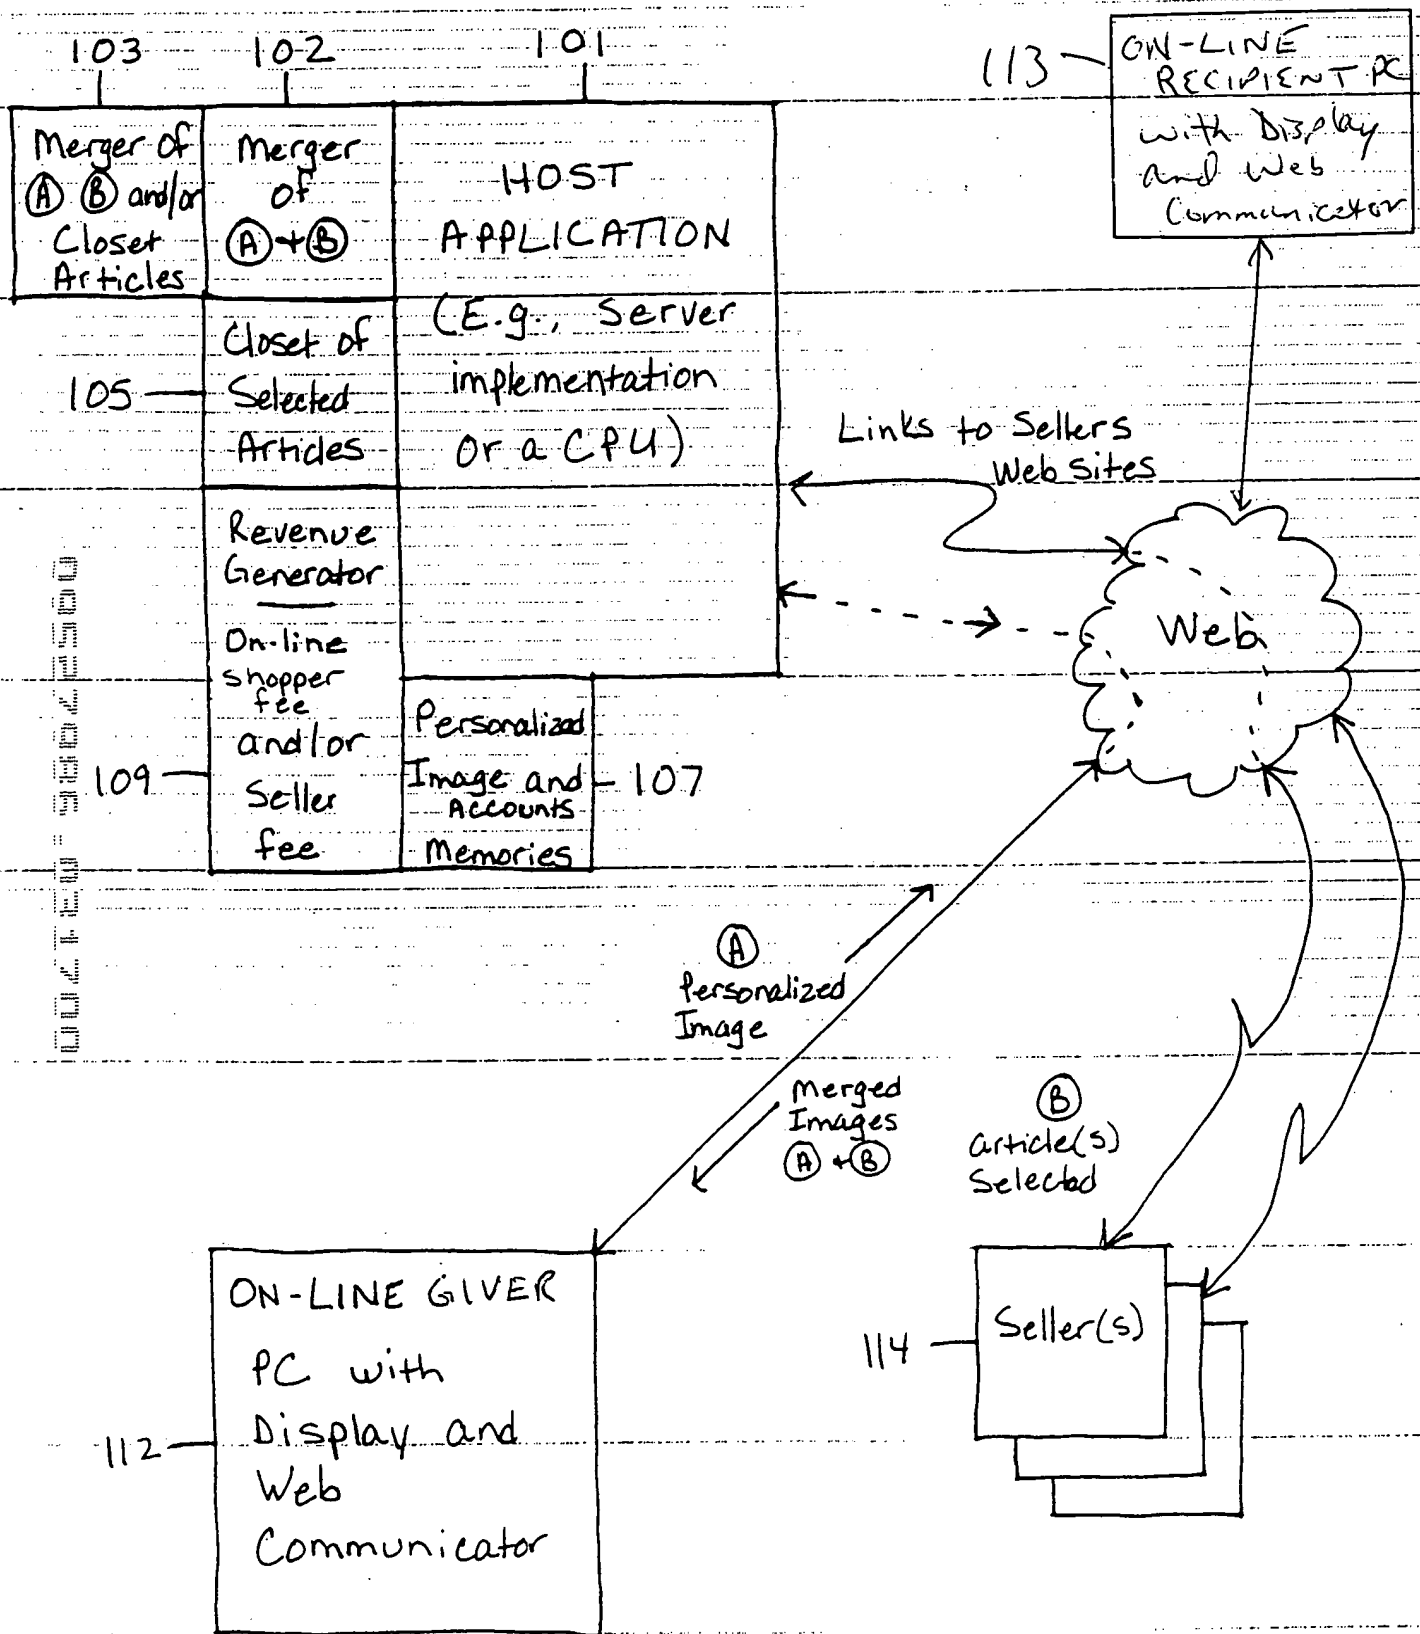 103
102
101
113
ON-LINE
RECIPIENT PC
with Display
and Web
Communicator
Merger of
Ⓐ Ⓑ and/or
Closet
Articles
Merger
of
Ⓐ+Ⓑ
HOST
APPLICATION
(E.g., Server
implementation
or a CPU)
105
Closet of
Selected
Articles
Links to Sellers
Web Sites
Revenue
Generator
On-line
shopper
fee
and/or
Seller
fee
109
Personalized
Image and
Accounts
Memories
107
Web
Ⓐ
Personalized
Image
Merged
Images
Ⓐ+Ⓑ
Ⓑ
article(s)
Selected
112
ON-LINE GIVER
PC with
Display and
Web
Communicator
114
Seller(s)